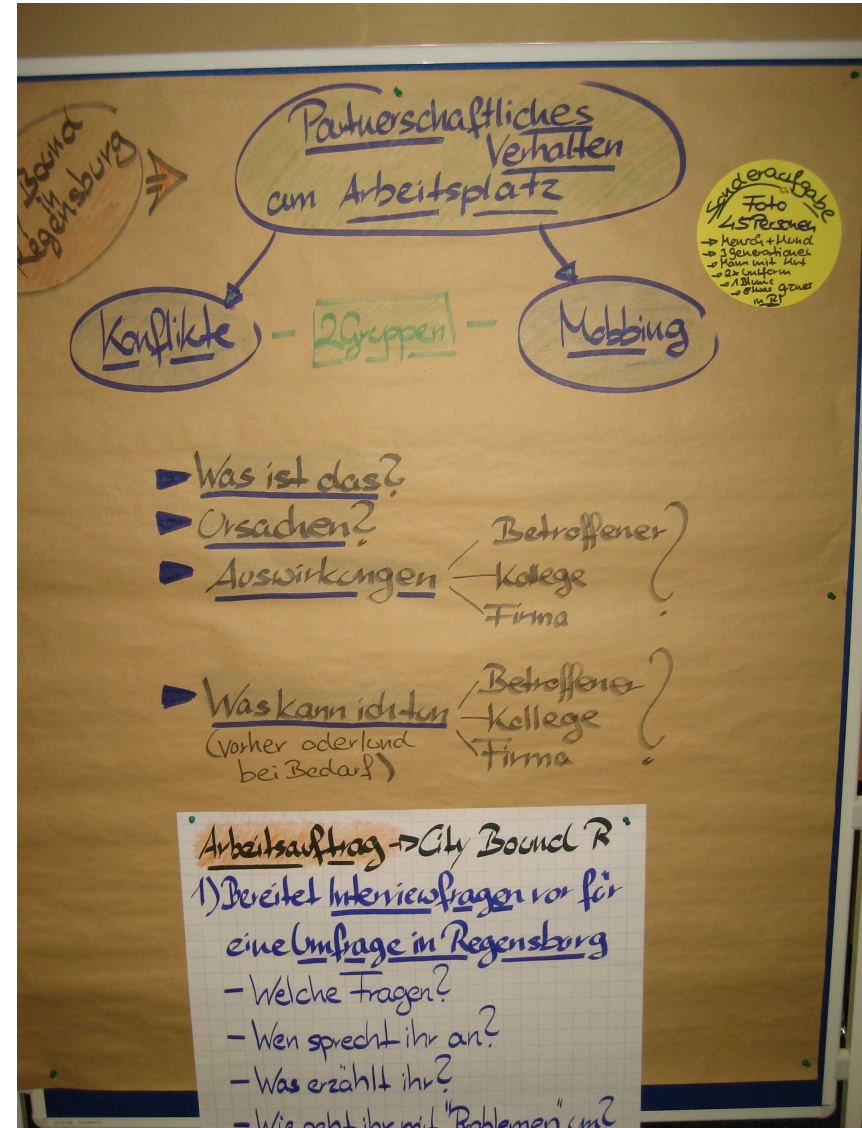 Bound
in
Regensburg
Partnerschaftliches
Verhalten
am Arbeitsplatz
Sonderaufgabe
Foto
45 Personen
→ Mensch + Hund
→ 3 Generationen
→ Mann mit Hut
→ 2x Uniform
→ 1 Blume
→ etwas grünes
in R
Konflikte - 2 Gruppen - Mobbing
Was ist das?
Ursachen?
Auswirkungen
Betroffener
Kollege
Firma
?
Was kann ich tun
(vorher oder/und
bei Bedarf)
Betroffener
Kollege
Firma
?
Arbeitsauftrag → City Bound R
1) Bereitet Interviewfragen vor für
eine Umfrage in Regensburg
- Welche Fragen?
- Wen sprecht ihr an?
- Was erzählt ihr?
- Wie geht ihr mit "Problemen" um?